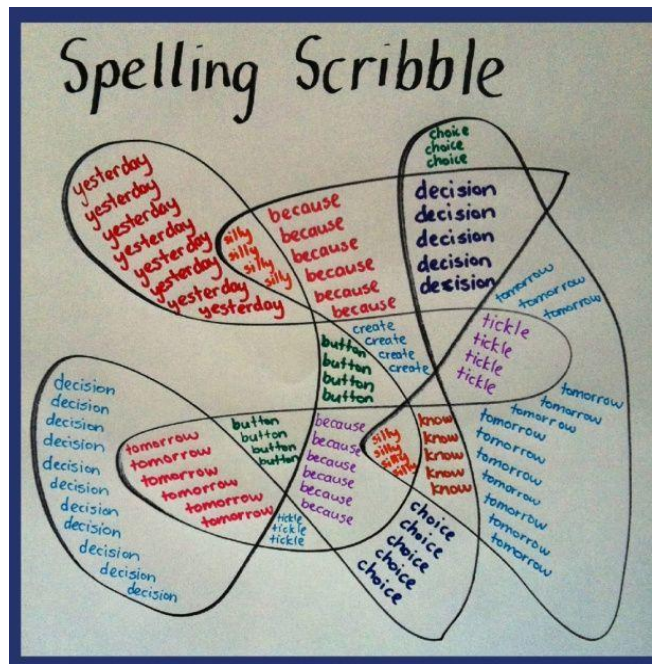 Spelling Scribble
choice
choice
choice
yesterday
yesterday
yesterday
yesterday
yesterday
yesterday
yesterday
yesterday
silly
silly
silly
silly
because
because
because
because
because
because
decision
decision
decision
decision
decision
tomorrow
tomorrow
tomorrow
create
create
create
create
tickle
tickle
tickle
tickle
button
button
button
button
decision
decision
decision
decision
decision
decision
decision
decision
decision
decision
decision
tomorrow
tomorrow
tomorrow
tomorrow
tomorrow
button
button
button
button
because
because
because
because
because
because
silly
silly
silly
silly
know
know
know
know
know
tomorrow
tomorrow
tomorrow
tomorrow
tomorrow
tomorrow
tomorrow
tomorrow
tomorrow
tomorrow
tomorrow
tickle
tickle
tickle
choice
choice
choice
choice
choice